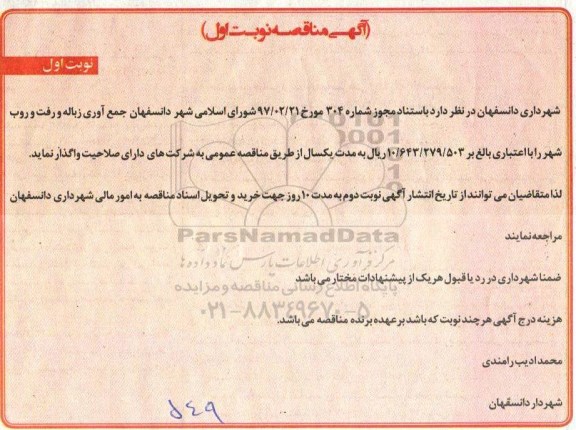 (آگهی مناقصه نوبت اول)
نوبت اول
شهرداری دانسفهان در نظر دارد باستناد مجوز شماره ۳۰۴ مورخ ۹۷/۰۲/۲۱ شورای اسلامی شهر دانسفهان جمع آوری زباله و رفت و روب
شهر را با اعتباری بالغ بر ۱۰/۶۴۳/۲۷۹/۵۰۳ ریال به مدت یکسال از طریق مناقصه عمومی به شرکت های دارای صلاحیت واگذار نماید.
لذا متقاضیان می توانند از تاریخ انتشار آگهی نوبت دوم به مدت ۱۰ روز جهت خرید و تحویل اسناد مناقصه به امور مالی شهرداری دانسفهان
مراجعه نمایند
ParsNamadData
مرکز فرآوری اطلاعات پارس نماد داده ها
ضمنا شهرداری در رد یا قبول هر یک از پیشنهادات مختار می باشد
پایگاه اطلاع رسانی مناقصه و مزایده
۰۲۱-۸۸۳۴۹۶۷۰-۵
هزینه درج آگهی هر چند نوبت که باشد بر عهده برنده مناقصه می باشد.
محمد ادیب رامندی
شهردار دانسفهان
۵۴۹